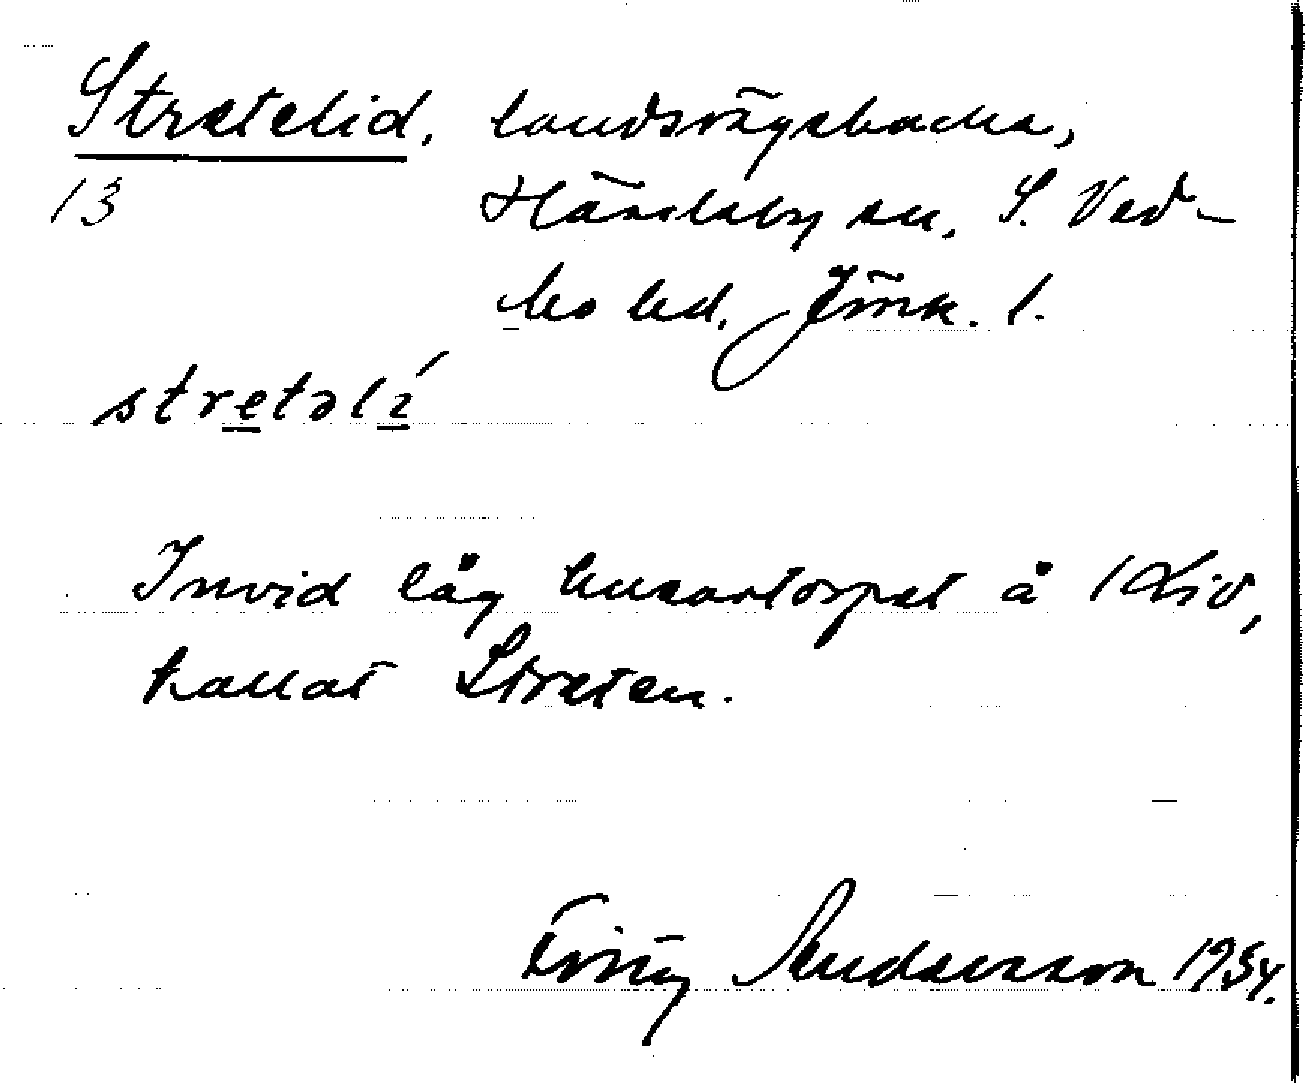 Stretelid, landsvägsbacke,
13 Hässleby sn, S. Ved-
bo hd, Jönk. l.
stretəlí
Invid låg husartorpet å 1 Lid,
kallat Streten.
Ering Andersson 1934.